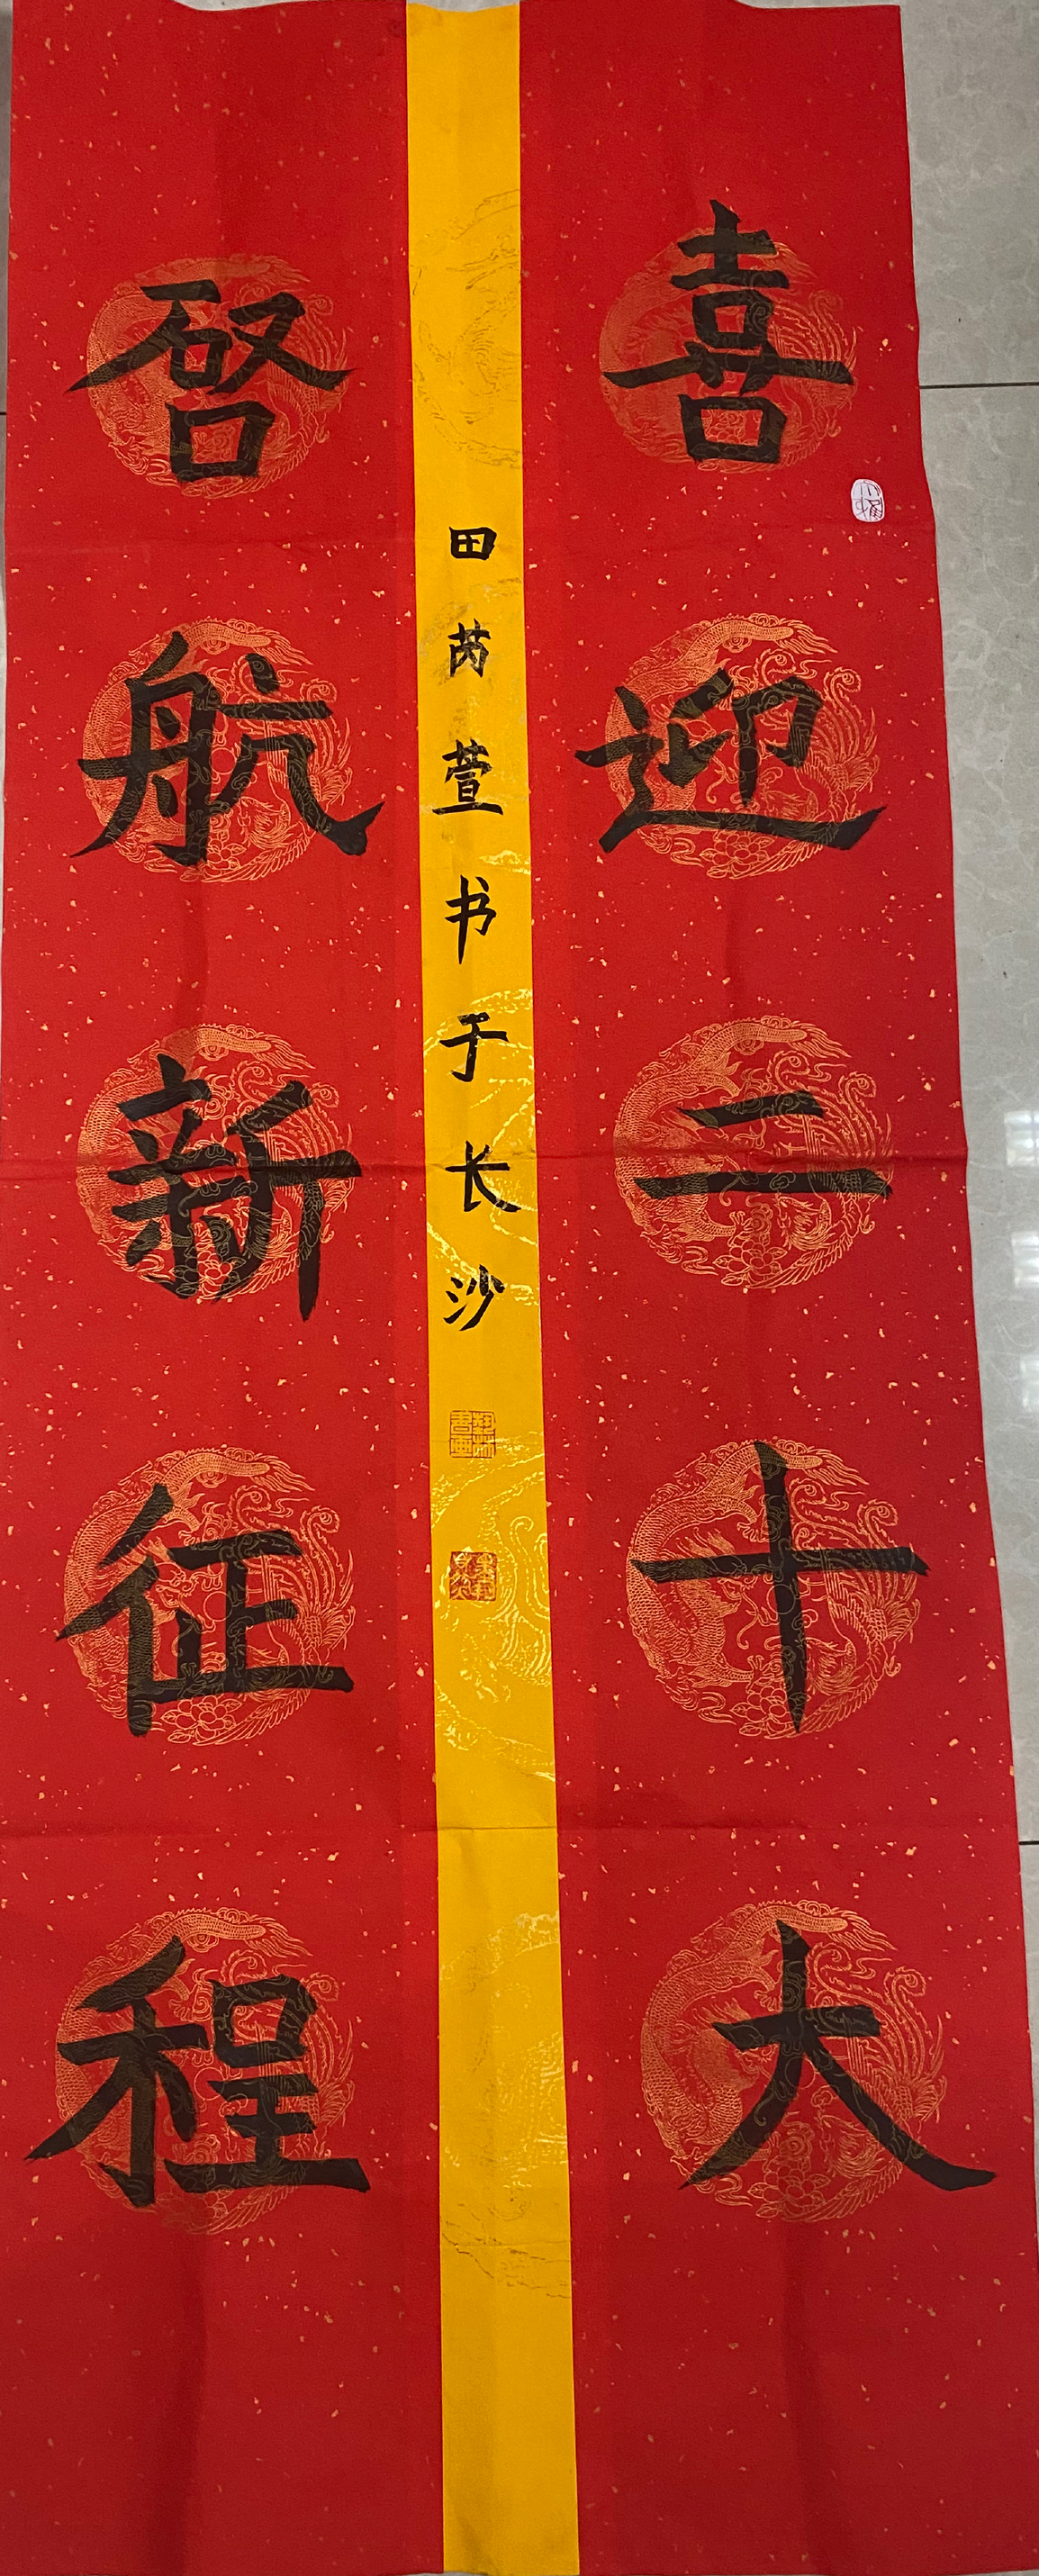 喜迎二十大
启航新征程
田芮萱书于长沙